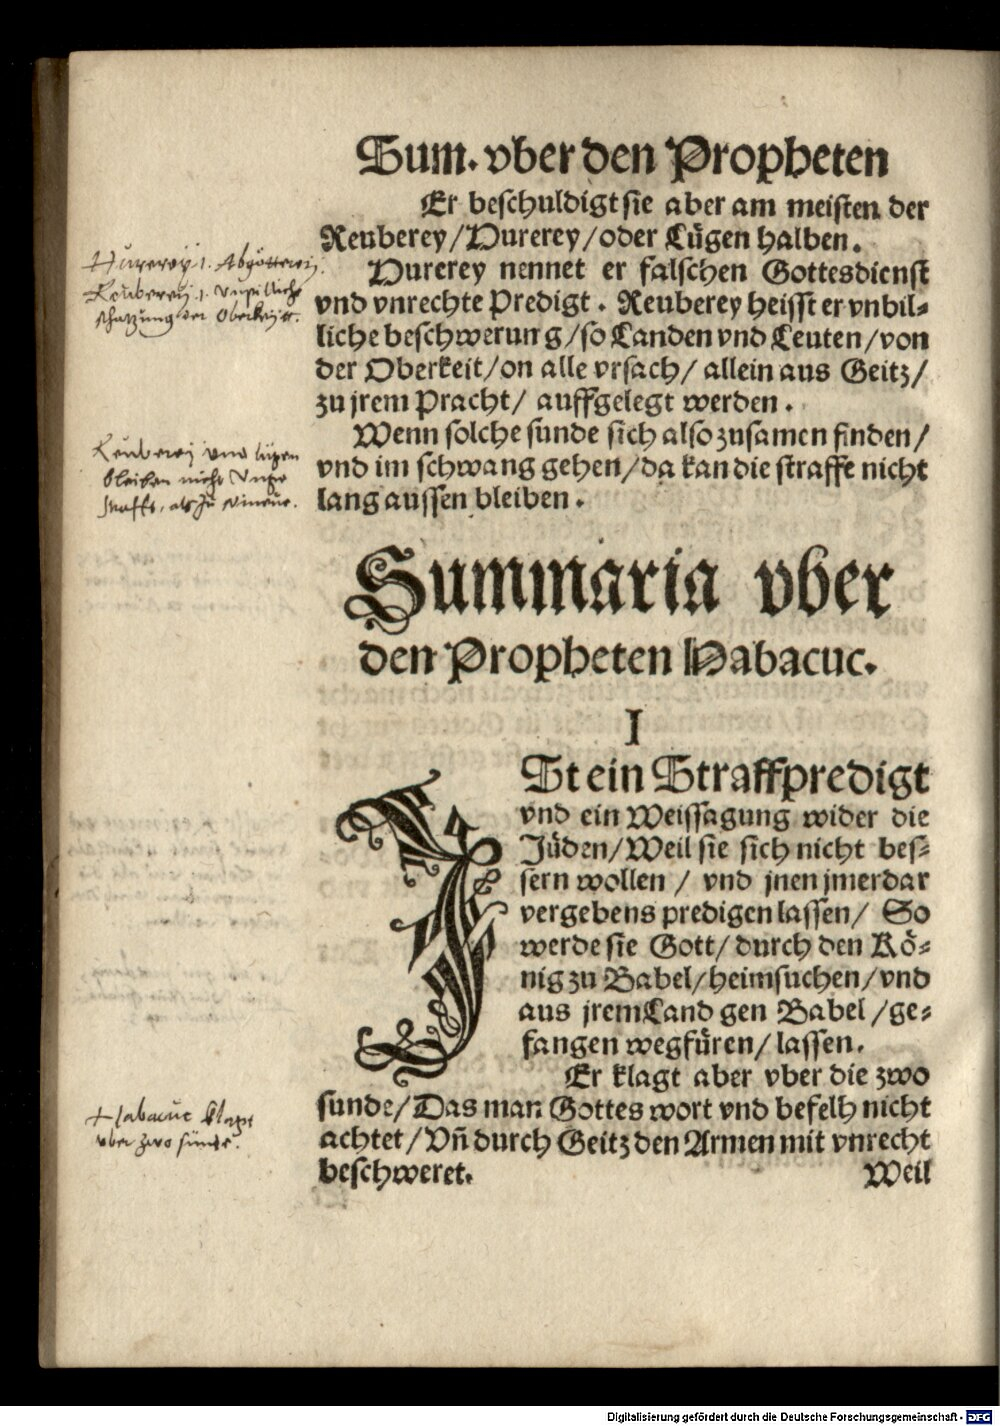 Sum. vber den Propheten
Er beschuldigt sie aber am meisten der
Reuberey/Hurerey/oder Lügen halben.
Hurerey nennet er falschen Gottesdienst
vnd vnrechte Predigt. Reuberey heisst er vnbil-
liche beschwerung/so Landen vnd Leuten/von
der Oberkeit/on alle vrsach/ allein aus Geitz/
zu jrem Pracht/ auffgelegt werden.
Wenn solche sunde sich also zusamen finden/
vnd im schwang gehen/da kan die straffe nicht
lang aussen bleiben.
Hurerey .1. Abgötterey.
Reuberey .1. Vnpilliche
schatzung der Oberkeyt.
Reuberey vnd lügen
bleiben nicht
strafft, als zu Niniue.
Summaria vber
den Propheten Habacuc.
I
Ist ein Straffpredigt
vnd ein Weissagung wider die
Jüden/Weil sie sich nicht bes-
sern wollen / vnd jnen jmerdar
vergebens predigen lassen/ So
werde sie Gott/durch den Kö-
nig zu Babel/heimsuchen/vnd
aus jrem Land gen Babel /ge-
fangen wegfüren/ lassen.
Er klagt aber vber die zwo
sunde/Das man Gottes wort vnd befelh nicht
achtet/Vñ durch Geitz den Armen mit vnrecht
beschweret.
Weil
Habacuc klagt
vber zwo sünde.
Digitalisierung gefördert durch die Deutsche Forschungsgemeinschaft - DFG